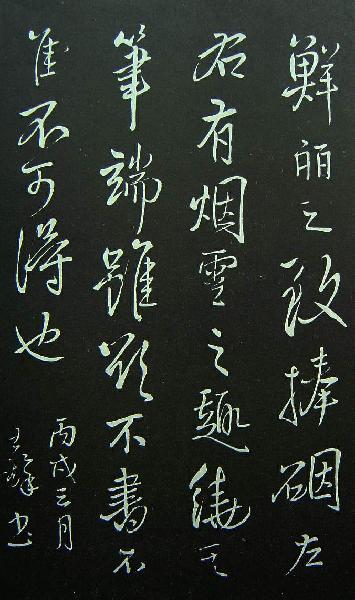 鮮丽之致捧砚左
右有烟雲之趣繞其
筆端雖欲不書不
書不可得也
丙戌三月
王鐸書